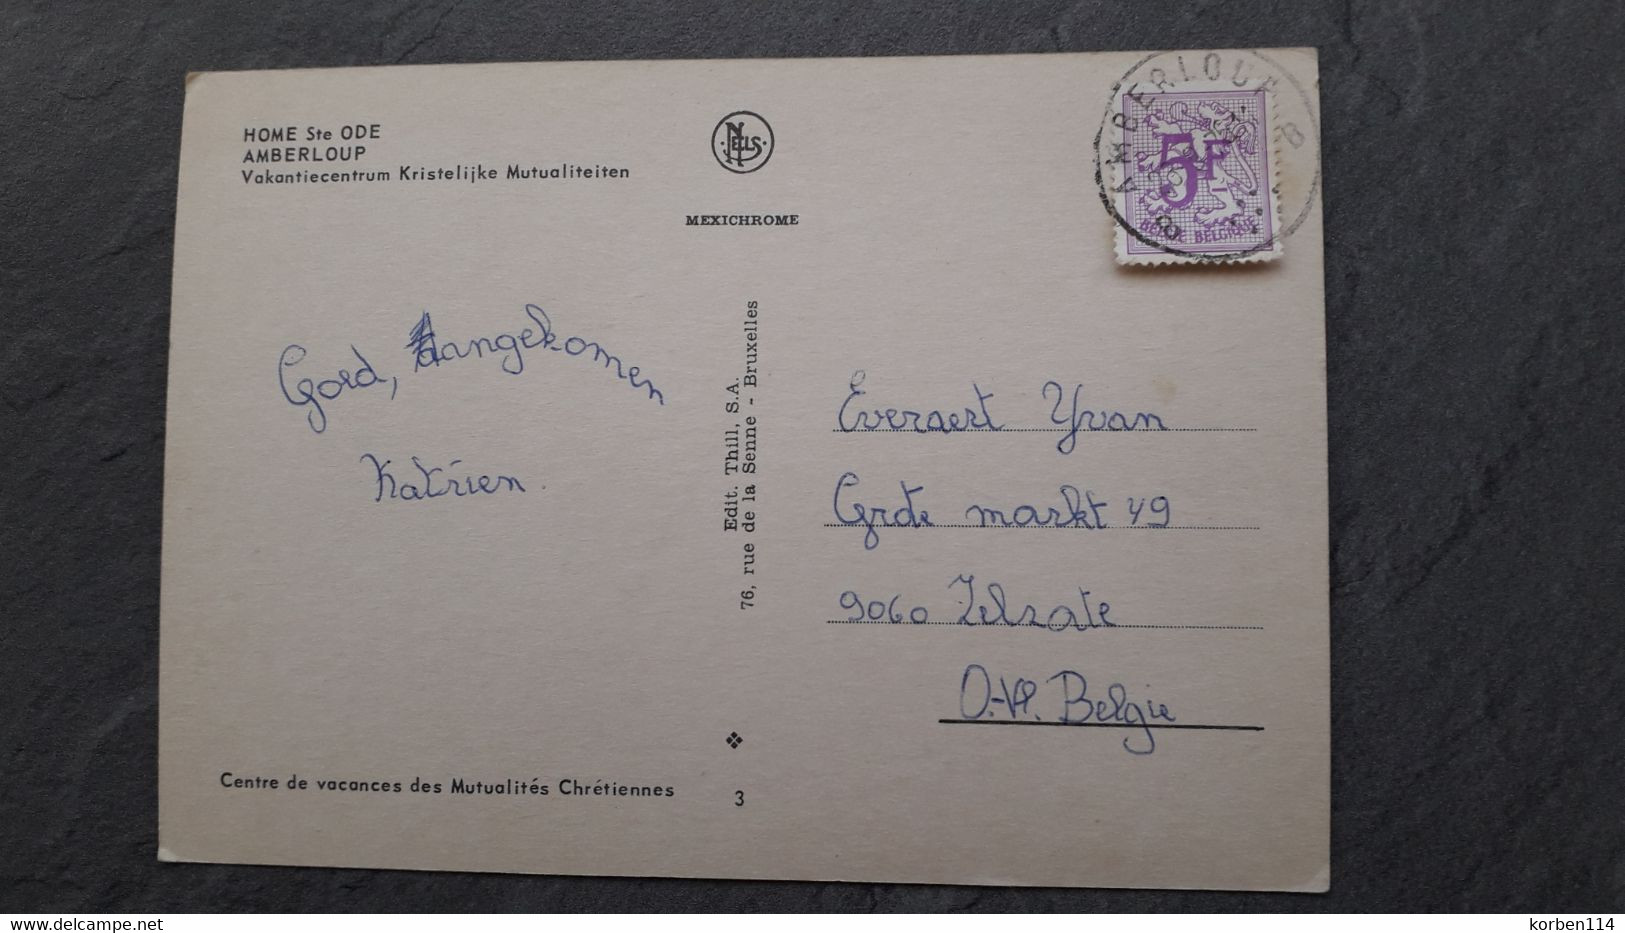 HOME Ste ODE
AMBERLOUP
Vakantiecentrum Kristelijke Mutualiteiten
NELS
MEXICHROME
AMBERLOUP
B
5F
BELGIE BELGIQUE
Goed, Aangekomen
Katrien.
Edit. Thill, S.A.
76, rue de la Senne - Bruxelles
Everaert Yvan
Grote markt 49
9060 Zelzate
O.-Vl. Belgie
Centre de vacances des Mutualités Chrétiennes
3
delcampe.net
korben114